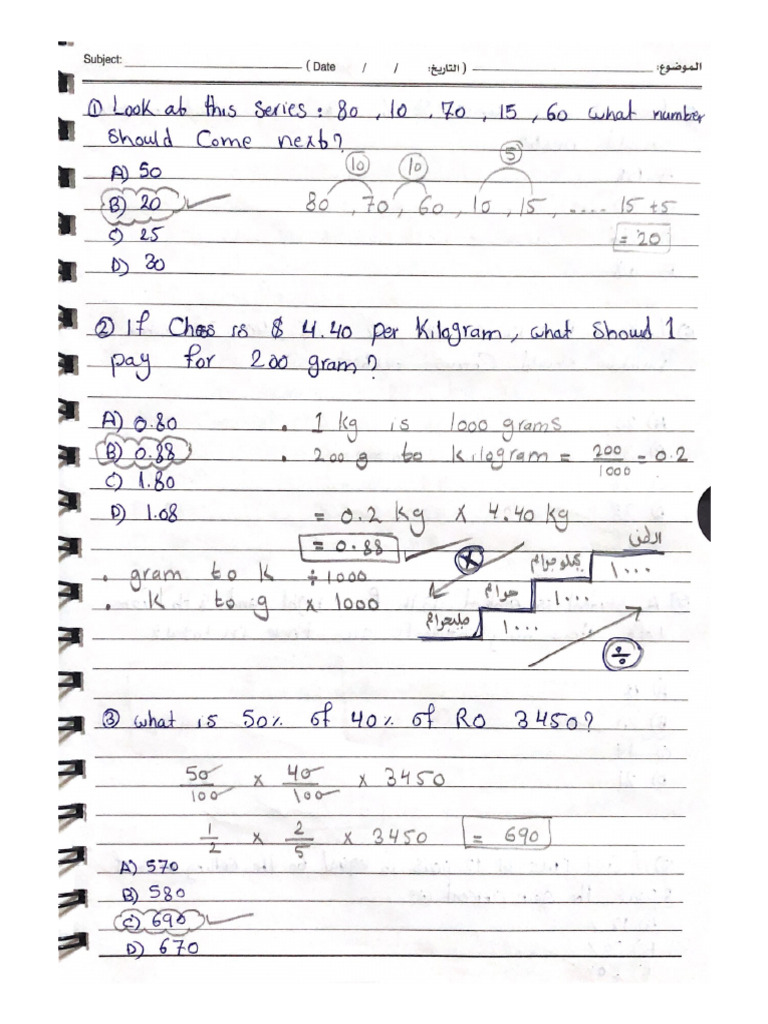 Subject: ( Date / / التاريخ: ) الموضوع:
① Look at this series : 80 , 10 , 70 , 15 , 60 what number
should come next?
A) 50
10 10 5
B) 20 ✓ 80 , 70 , 60 , 10 , 15 , .... 15 + 5
C) 25 = 20
D) 30
② If Chess is $ 4.40 per Kilogram, what should I
pay for 200 gram?
A) 0.80 • 1 kg is 1000 grams
B) 0.88 • 200 g to kilogram = 200/1000 = 0.2
C) 1.80
D) 1.08 = 0.2 kg x 4.40 kg
= 0.88 ✓
• gram to k ÷ 1000
• k to g x 1000
x الطن
كيلوجرام ١٠٠٠
جرام ١٠٠٠
مليجرام ١٠٠٠
÷
③ what is 50% of 40% of RO 3450?
50/100 x 40/100 x 3450
1/2 x 2/5 x 3450 = 690
A) 570
B) 580
C) 690 ✓
D) 670